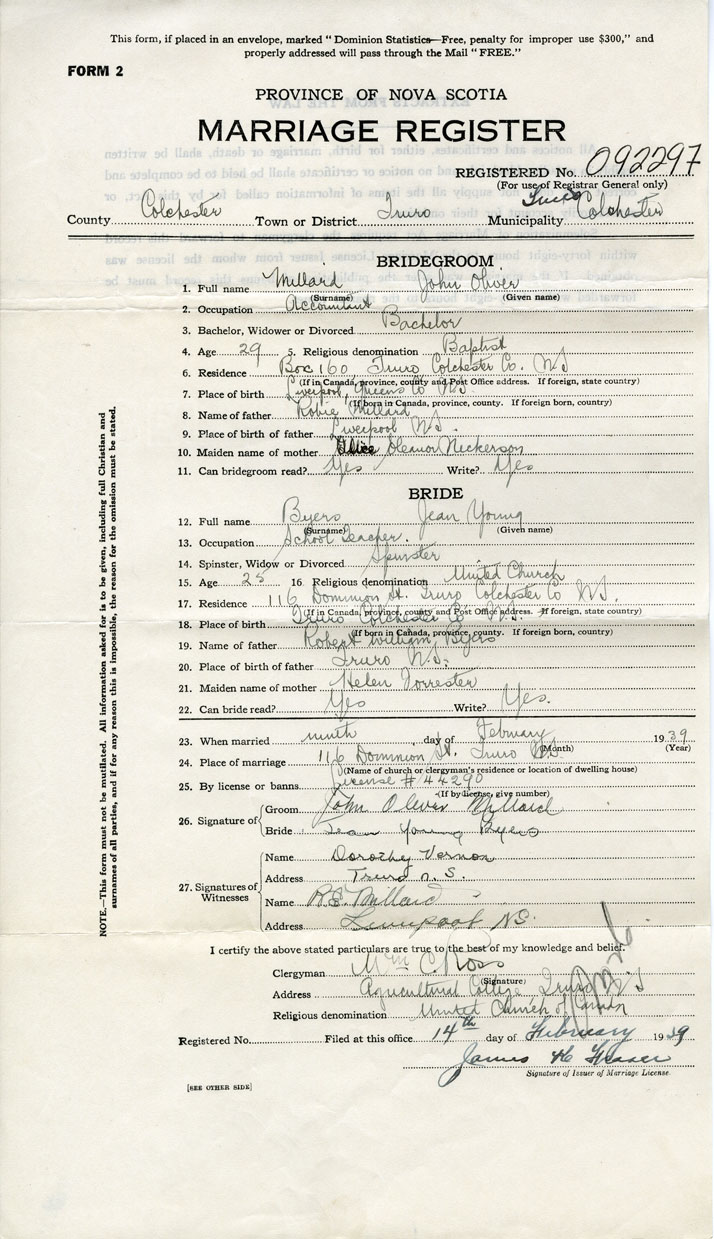 This form, if placed in an envelope, marked "Dominion Statistics—Free, penalty for improper use $300," and
properly addressed will pass through the Mail "FREE."
FORM 2
PROVINCE OF NOVA SCOTIA
MARRIAGE REGISTER
REGISTERED No. 092297
(For use of Registrar General only)
Truro
County Colchester Town or District Truro Municipality Colchester
BRIDEGROOM
1. Full name Millard John Oliver
(Surname) (Given name)
2. Occupation Accountant
3. Bachelor, Widower or Divorced Bachelor
4. Age 29 5. Religious denomination Baptist
6. Residence Box 160 Truro Colchester Co. N.S
(If in Canada, province, county and Post Office address. If foreign, state country)
7. Place of birth Liverpool, Queens Co N.S.
(If born in Canada, province, county. If foreign born, country)
8. Name of father Robie Millard
9. Place of birth of father Liverpool N.S.
10. Maiden name of mother Eleanor Nickerson
11. Can bridegroom read? Yes Write? Yes
BRIDE
12. Full name Byers Jean Young
(Surname) (Given name)
13. Occupation School Teacher.
14. Spinster, Widow or Divorced Spinster
15. Age 25 16 Religious denomination United Church
17. Residence 116 Dominion St. Truro Colchester Co N.S.
(If in Canada, province, county and Post Office address. If foreign, state country)
18. Place of birth Truro Colchester Co N.S.
(If born in Canada, province, county. If foreign born, country)
19. Name of father Robert William Byers
20. Place of birth of father Truro N.S.
21. Maiden name of mother Helen Forrester
22. Can bride read? Yes Write? Yes.
23. When married ninth day of February 1939
(Month) (Year)
24. Place of marriage 116 Dominion St. Truro N.S.
(Name of church or clergyman's residence or location of dwelling house)
25. By license or banns License # 44290
(If by license, give number)
26. Signature of
Groom John Oliver Millard
Bride Jean Young Byers
27. Signatures of Witnesses
Name Dorothy Vernon
Address Truro N.S.
Name R.E. Millard
Address Liverpool NS.
I certify the above stated particulars are true to the best of my knowledge and belief.
Clergyman Wm C. Ross
(Signature)
Address Agricultural College Truro N.S
Religious denomination United Church of Canada
Registered No. Filed at this office 14th day of February 1939
James H Fraser
Signature of Issuer of Marriage License
[SEE OTHER SIDE]
NOTE.—This form must not be mutilated. All information asked for is to be given, including full Christian and
surnames of all parties, and if for any reason this is impossible, the reason for the omission must be stated.